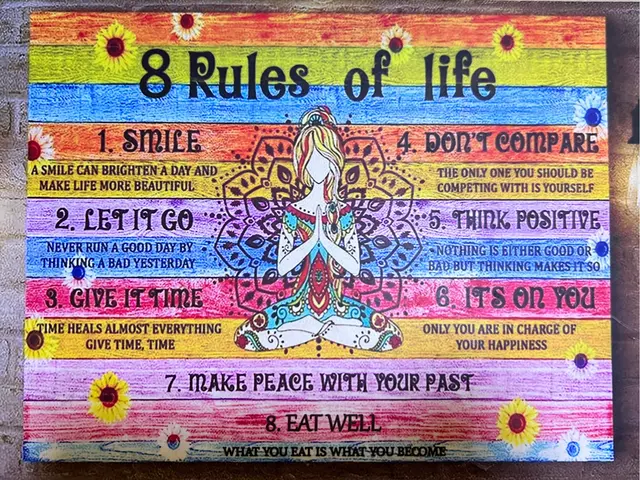 8 Rules of life
1. SMILE
A SMILE CAN BRIGHTEN A DAY AND
MAKE LIFE MORE BEAUTIFUL
2. LET IT GO
NEVER RUN A GOOD DAY BY
THINKING A BAD YESTERDAY
3. GIVE IT TIME
TIME HEALS ALMOST EVERYTHING
GIVE TIME, TIME
4. DON'T COMPARE
THE ONLY ONE YOU SHOULD BE
COMPETING WITH IS YOURSELF
5. THINK POSITIVE
NOTHING IS EITHER GOOD OR
BAD BUT THINKING MAKES IT SO
6. IT'S ON YOU
ONLY YOU ARE IN CHARGE OF
YOUR HAPPINESS
7. MAKE PEACE WITH YOUR PAST
8. EAT WELL
WHAT YOU EAT IS WHAT YOU BECOME